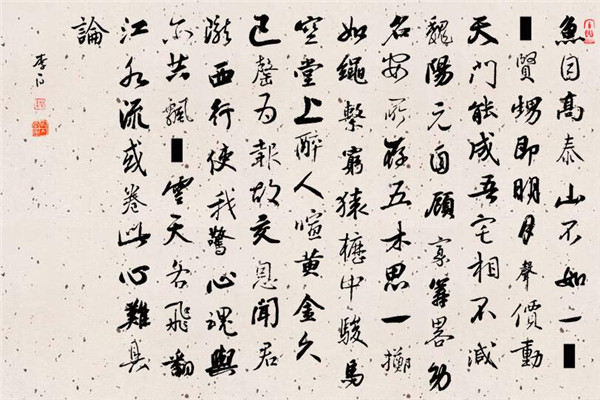 魚目高泰山不如一
賢甥即明月聲價動
天門能成吾宅相不減
魏陽元自顧寡籌畧功
名安所存五木思一擲
如繩繫窮猿櫪中駿馬
空堂上醉人喧黄金久
已罄為報故交恩聞君
隴西行使我驚心魂與
尒共飄雲天各飛翻
江水流或卷此心難具
論
李白